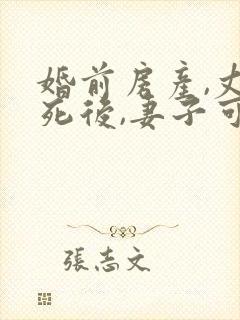 婚前房產,丈
死後,妻子可
張志文